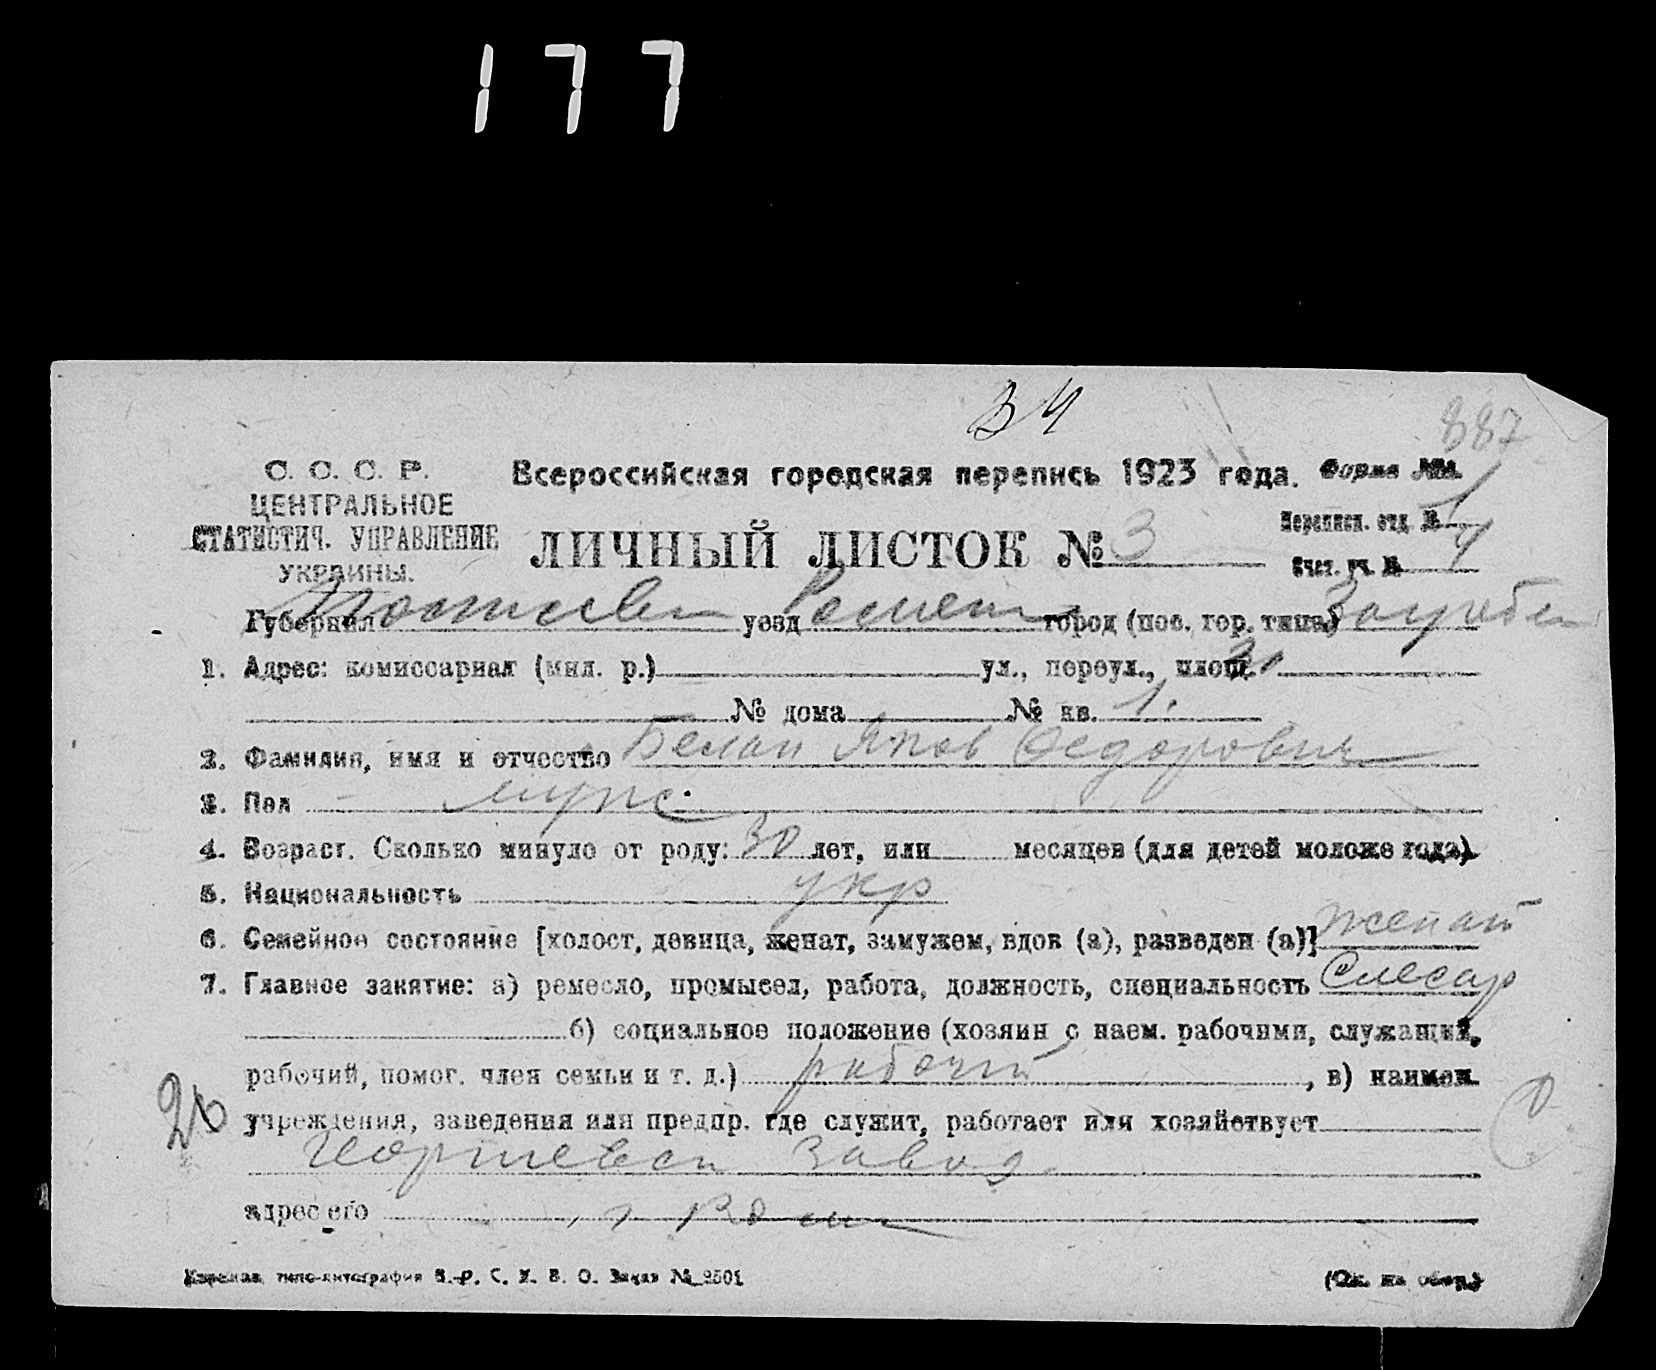 177
34
887
С. С. С. Р.
ЦЕНТРАЛЬНОЕ
СТАТИСТИЧ. УПРАВЛЕНИЕ
УКРАИНЫ.
Всероссийская городская перепись 1923 года. Форма №1.
ЛИЧНЫЙ ЛИСТОК № 3
Переписн. отд. №
Счет. уч. № 4
Губерния Полтисвен уезд Ромен город (пос. гор. типа)
1. Адрес: комиссариат (мил. р.) ул., переул., площ.
№ дома № кв. 1.
2. Фамилия, имя и отчество Белан Яков Федорович
3. Пол муж.
4. Возраст. Сколько минуло от роду: 30 лет, или месяцев (для детей моложе года).
5. Национальность укр
6. Семейное состояние [холост, девица, женат, замужем, вдов (а), разведен (а)] женат
7. Главное занятие: а) ремесло, промысел, работа, должность, специальность Слесар
б) социальное положение (хозяин с наем. рабочими, служащий,
рабочий, помог. член семьи и т. д.) рабочий , в) наимен.
26
учреждения, заведения или предпр. где служит, работает или хозяйствует
Георгиевск Завод
адрес его
типо-литография В.-Р. С. Х. В. О. Заказ № 2501
(См. на обор.)